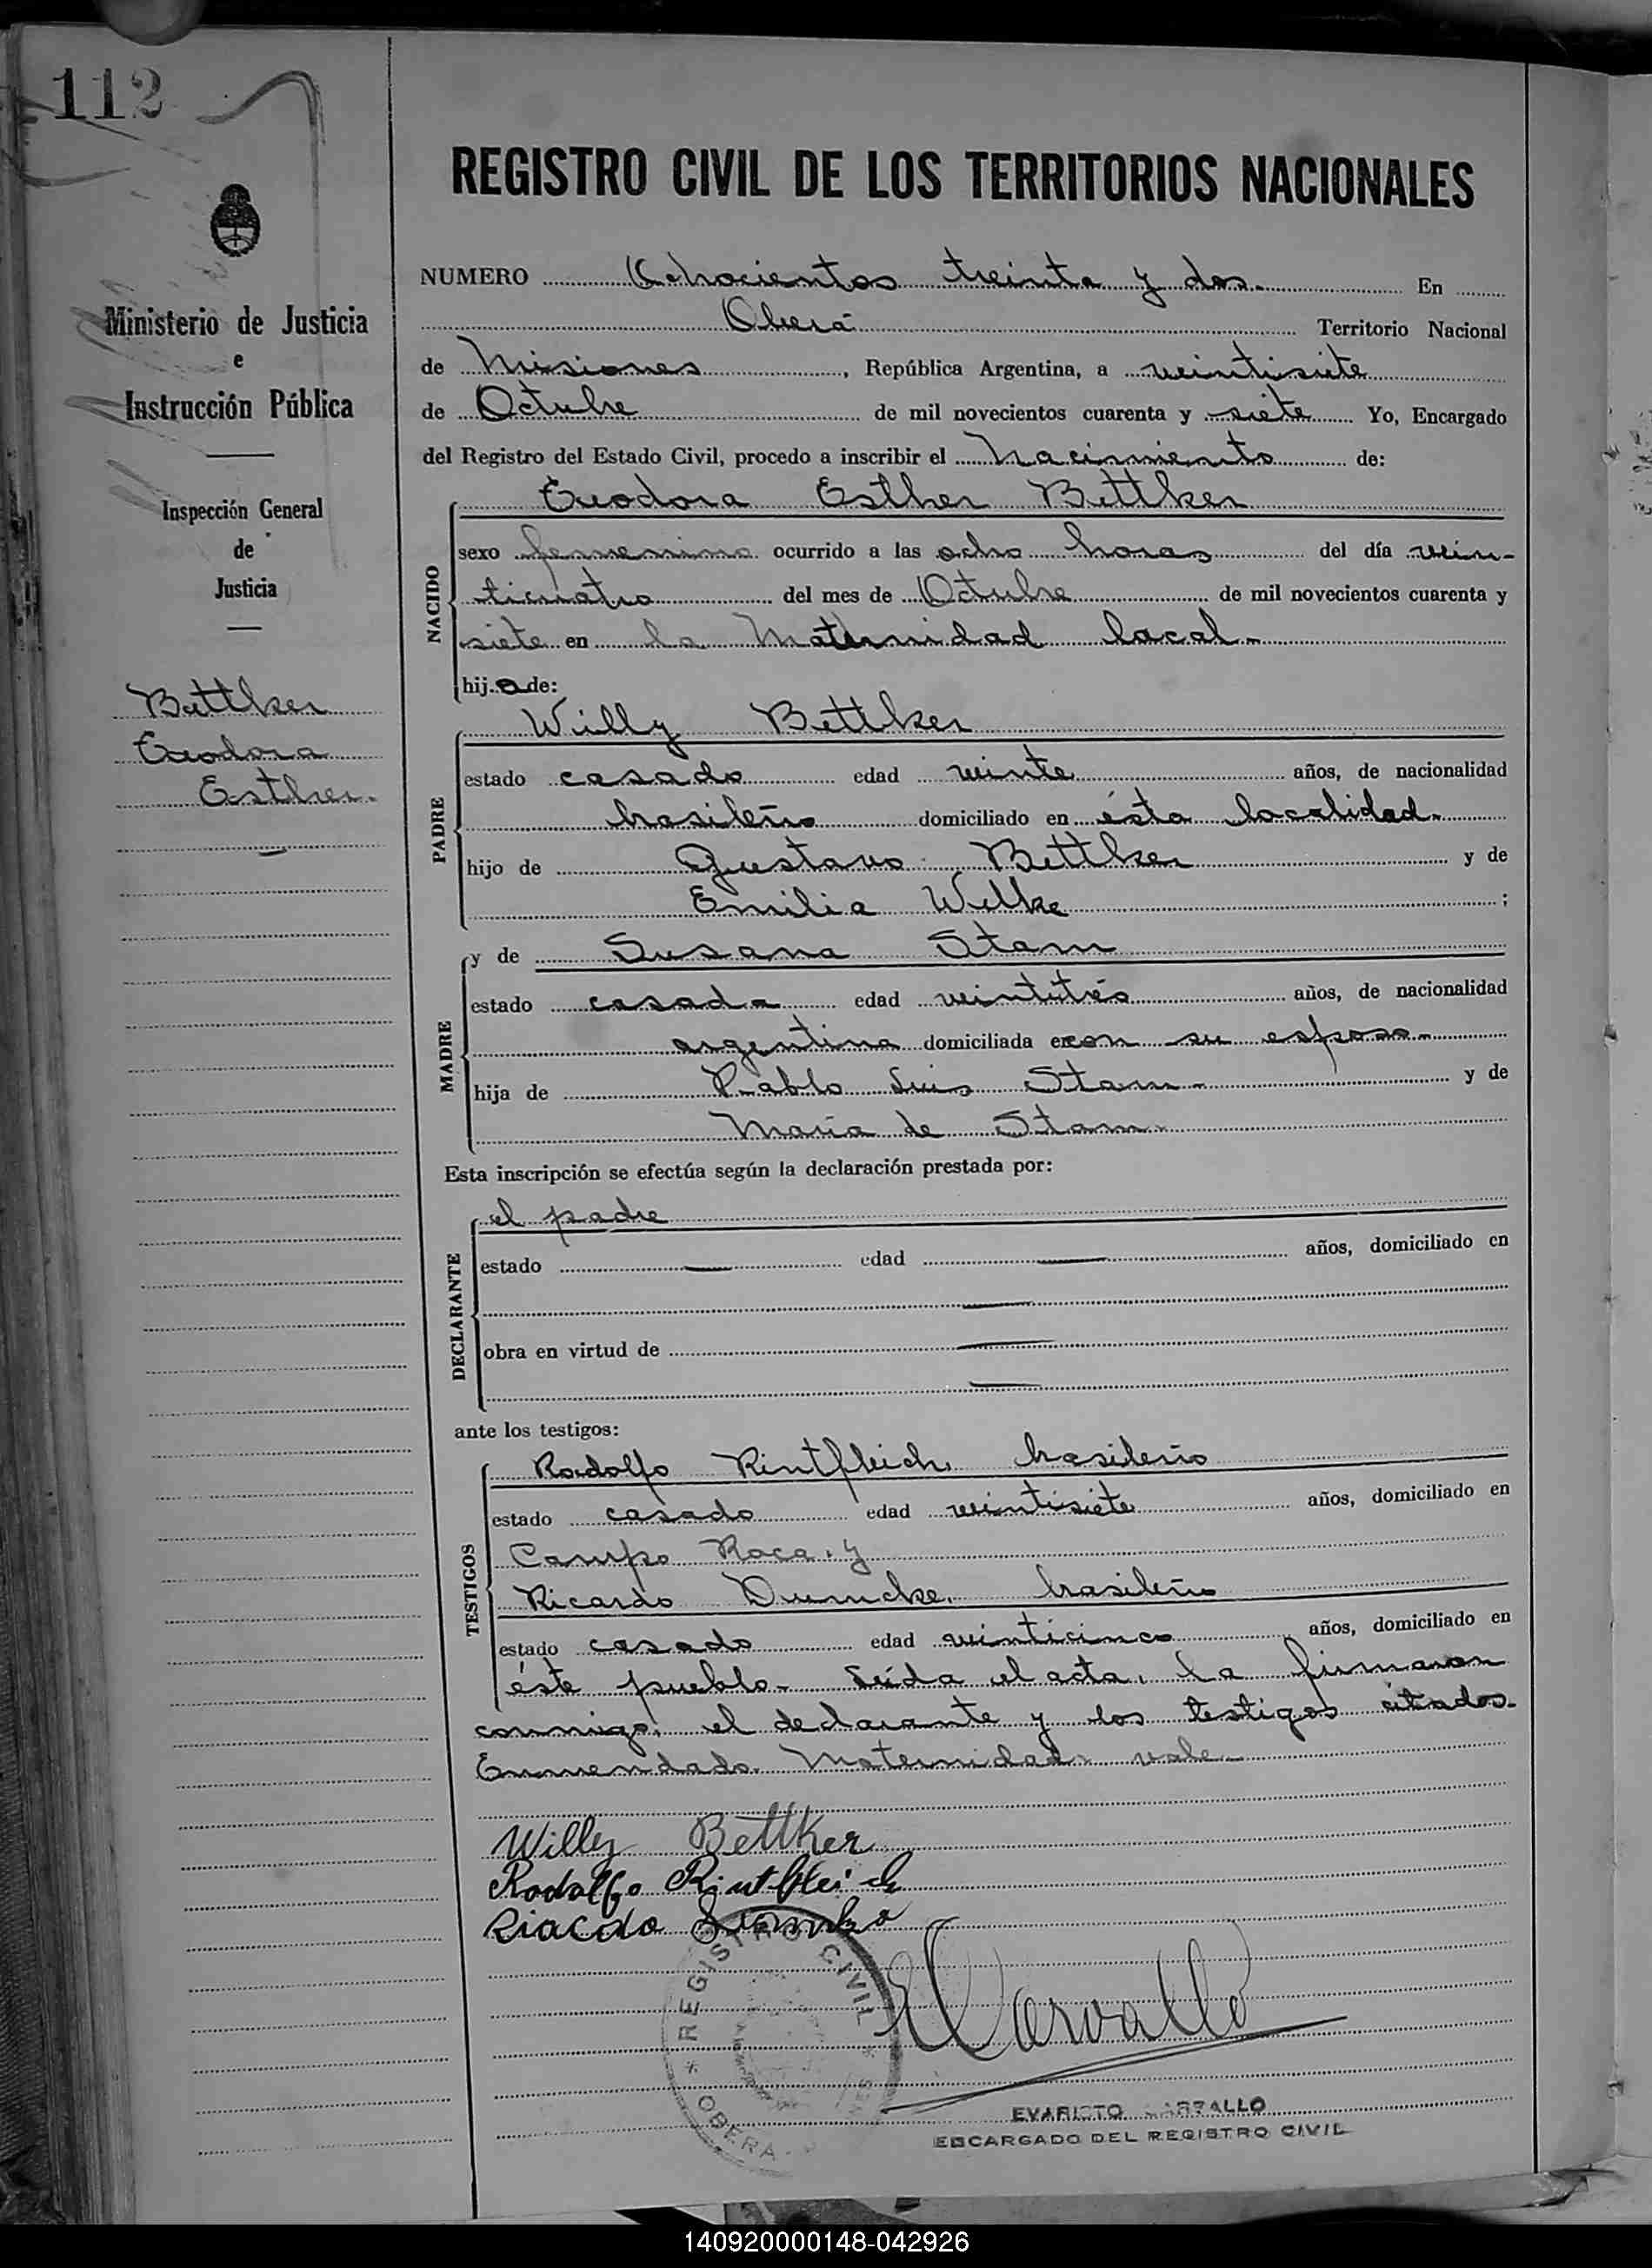 112
REGISTRO CIVIL DE LOS TERRITORIOS NACIONALES
Ministerio de Justicia
e
Instrucción Pública
Inspección General
de
Justicia
Bettker
Eudora
Esther.
NUMERO Ochocientos treinta y dos.- En
Oberá Territorio Nacional
de Misiones, República Argentina, a veintisiete
de Octubre de mil novecientos cuarenta y siete Yo, Encargado
del Registro del Estado Civil, procedo a inscribir el nacimiento de:
NACIDO
Eudora Esther Bettker
sexo femenino ocurrido a las ocho horas del día vein-
ticuatro del mes de Octubre de mil novecientos cuarenta y
siete en la Maternidad local.-
hija de:
PADRE
Willy Bettker
estado casado edad veinte años, de nacionalidad
brasileño domiciliado en ésta localidad.
hijo de Gustavo Bettker y de
Emilia Welke ;
MADRE
y de Susana Stam
estado casada edad veintitrés años, de nacionalidad
argentina domiciliada con su esposo.-
hija de Pablo Luis Stam.- y de
María de Stam.
Esta inscripción se efectúa según la declaración prestada por:
DECLARANTE
el padre
estado — edad — años, domiciliado en
—
obra en virtud de —
—
ante los testigos:
TESTIGOS
Rodolfo Rintfleich, brasileño
estado casado edad veintisiete años, domiciliado en
Campo Roca, y
Ricardo Dumcke, brasileño
estado casado edad veinticinco años, domiciliado en
éste pueblo.- Leída el acta, la firmaron
conmigo, el declarante y los testigos citados.
Enmendado. Maternidad. vale.-
Willy Bettker
Rodolfo Rintfleich
REGISTRO CIVIL
* OBERA
E Carvallo
EVARISTO CARVALLO
ENCARGADO DEL REGISTRO CIVIL
140920000148-042926